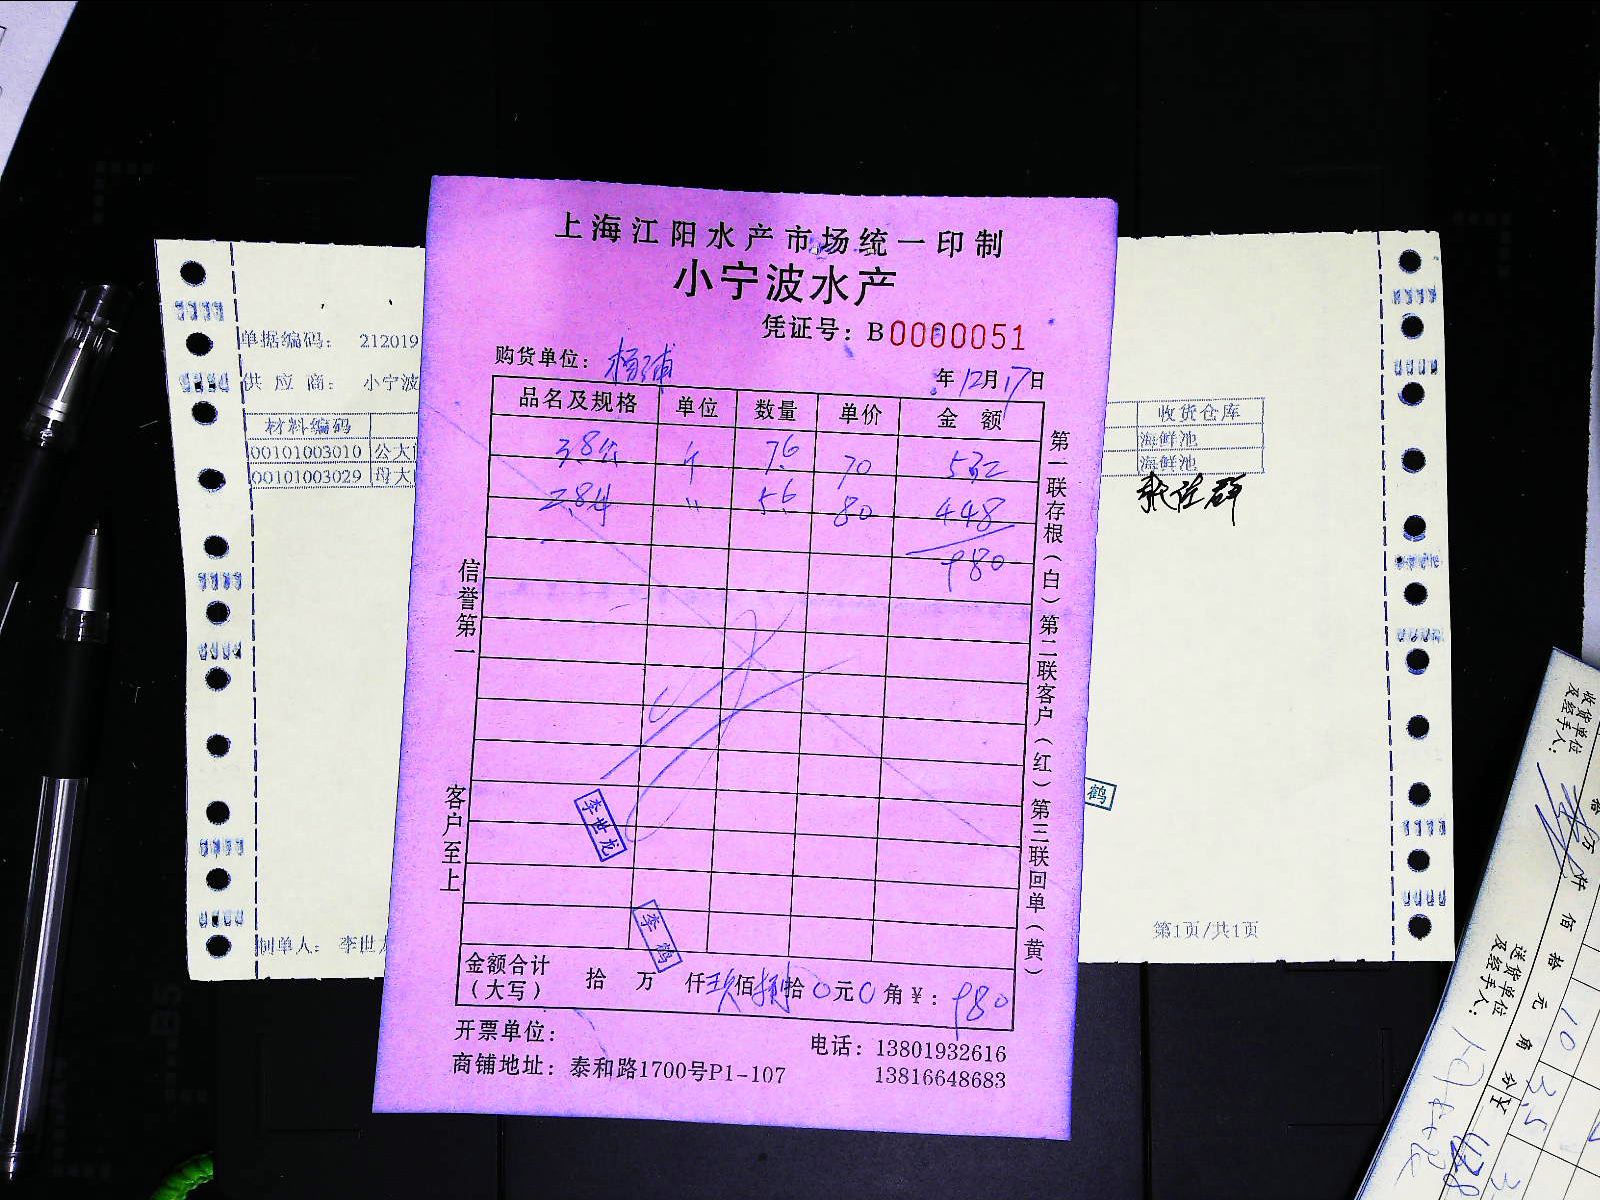 上海江阳水产市场统一印制
小宁波水产
凭证号：B0000051
购货单位：杨浦
年12月17日
品名及规格 单位 数量 单价 金额
3.8公 斤 7.6 70 532
2.8母 〃 5.6 80 448
980
信誉第一 客户至上
第一联存根（白）第二联客户（红）第三联回单（黄）
李世龙
李鹤
金额合计（大写） 拾 万 仟玖佰捌拾0元0角￥：980
开票单位：
电话：13801932616
商铺地址：泰和路1700号P1-107
13816648683
单据编码： 212019
供应商： 小宁波
材料编码
00101003010 公大
00101003029 母大
制单人： 李世
收货仓库
海鲜池
海鲜池
鹤
第1页/共1页
收货单位及经手人：
佰 拾 元 角 分
送货单位及经手人：
10
3.5